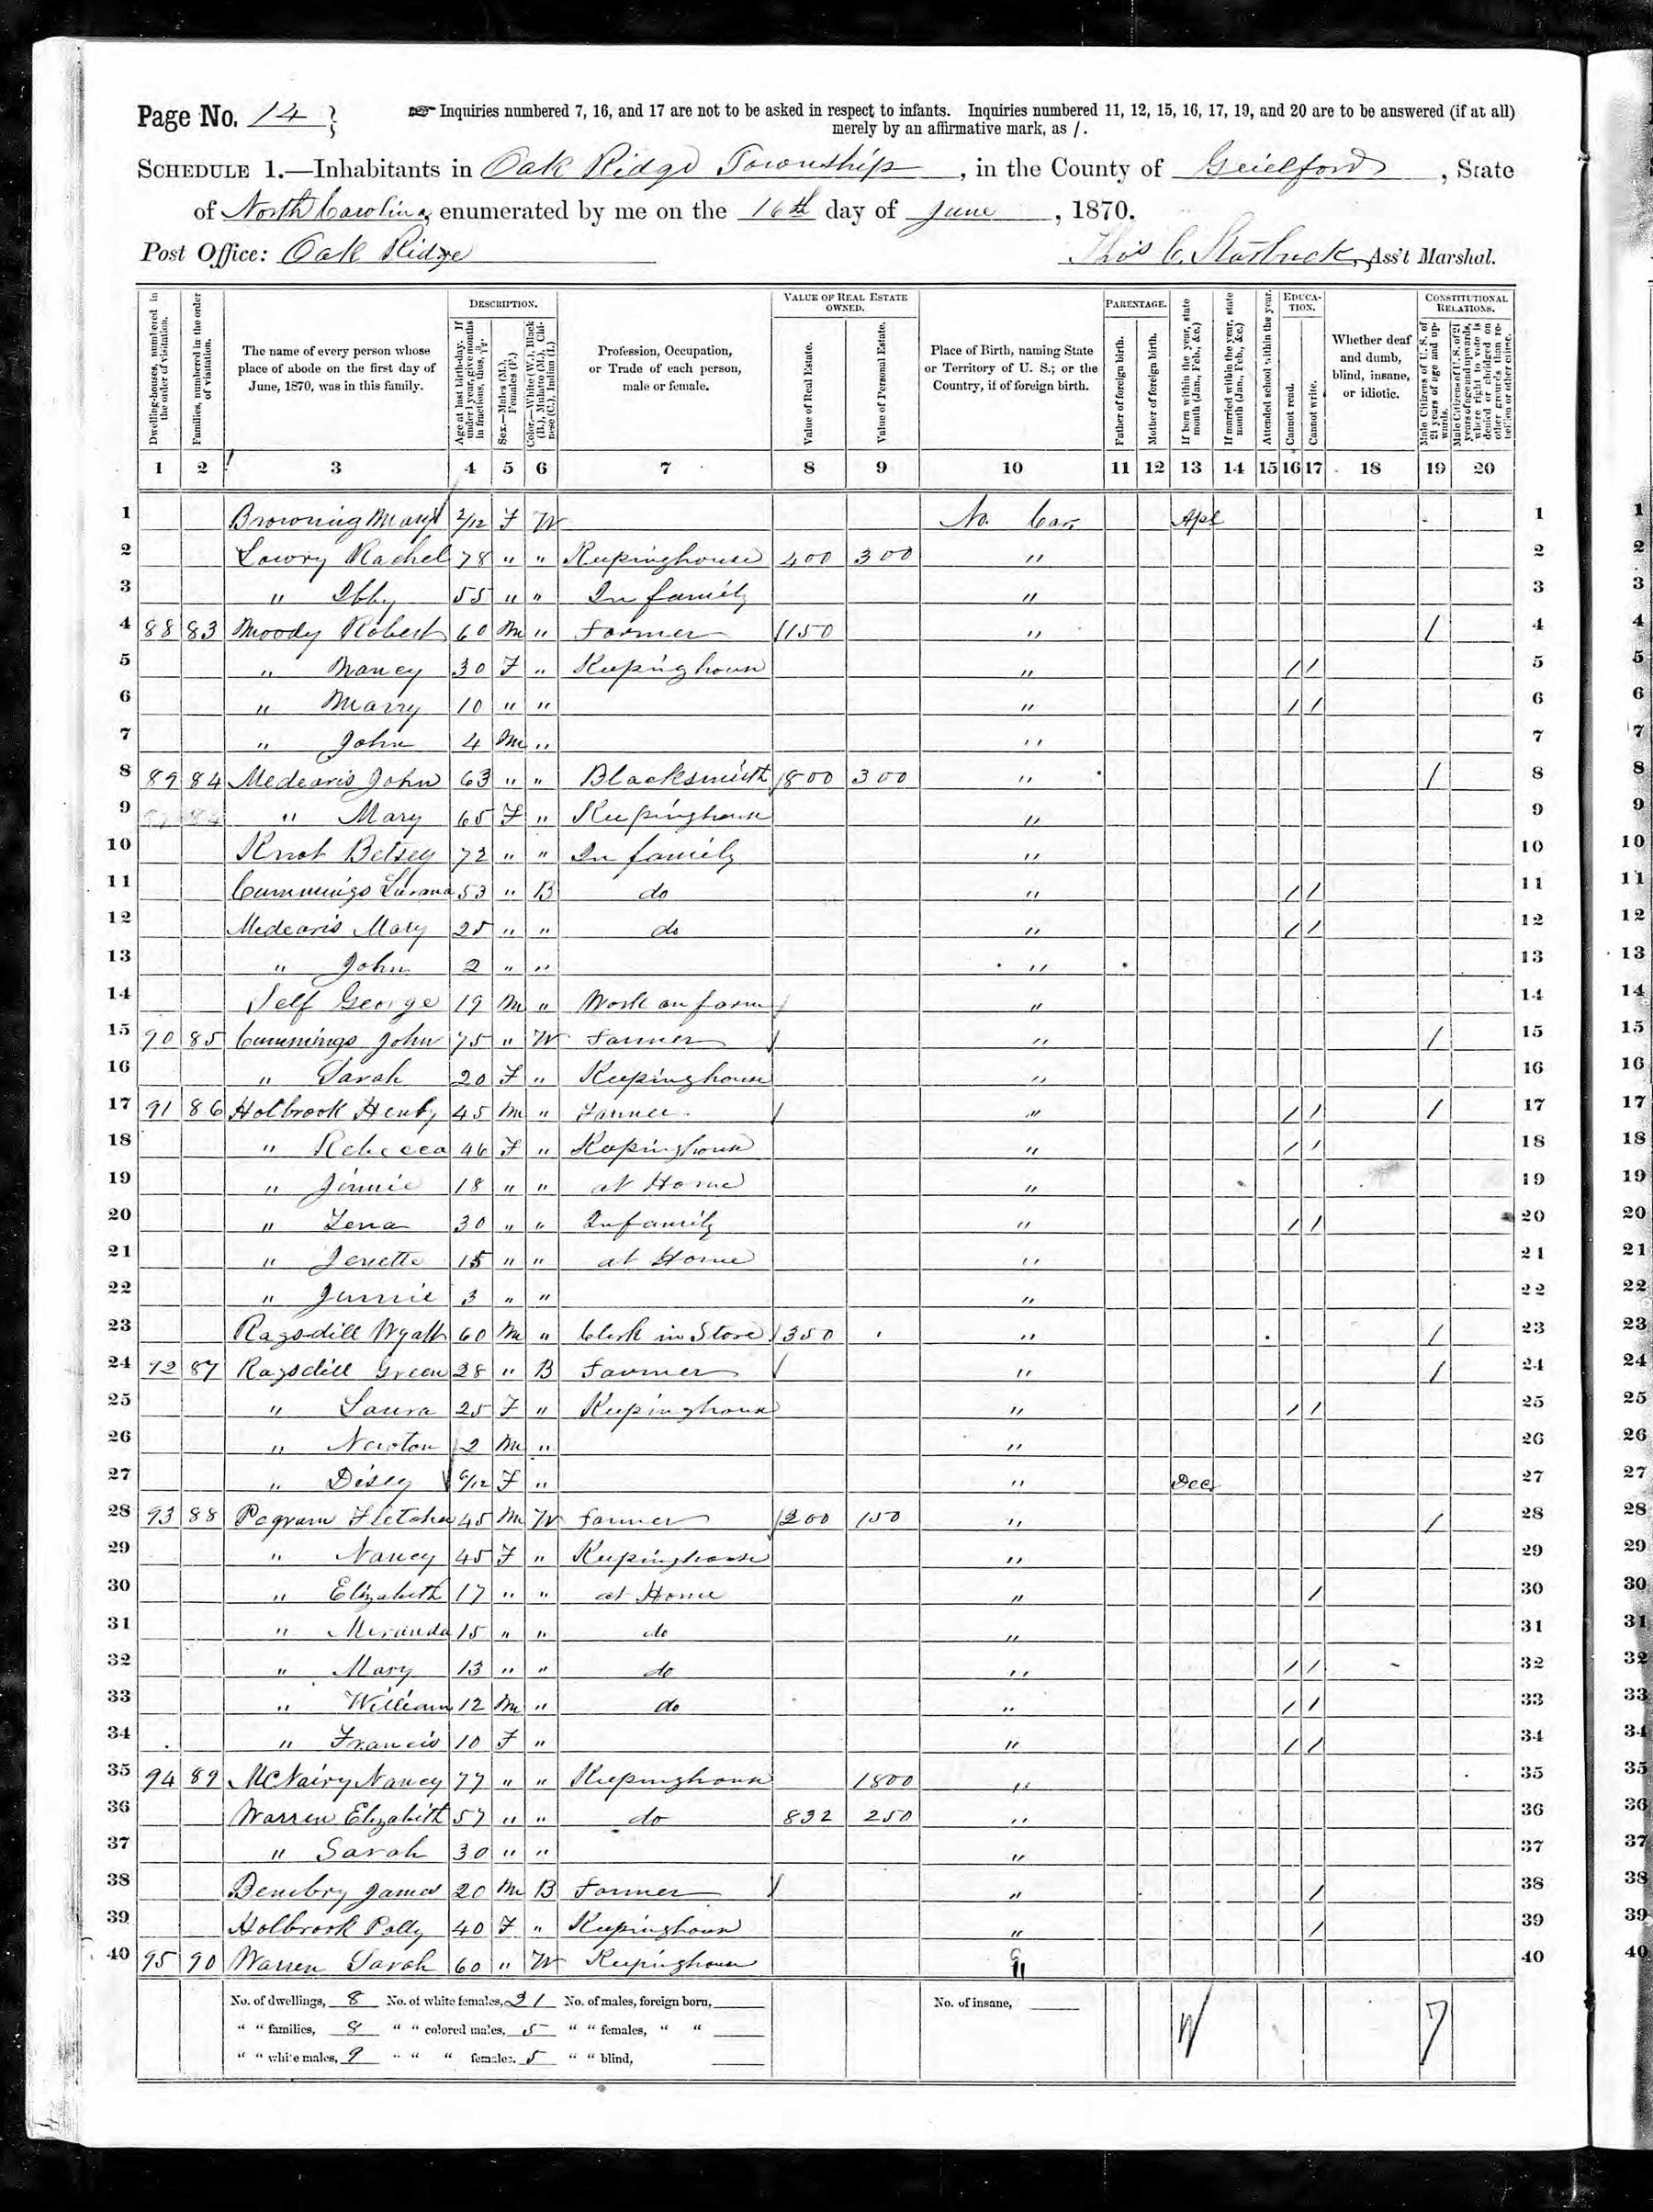 Page No. 14
Inquiries numbered 7, 16, and 17 are not to be asked in respect to infants. Inquiries numbered 11, 12, 15, 16, 17, 19, and 20 are to be answered (if at all)
merely by an affirmative mark, as /.
SCHEDULE 1.—Inhabitants in Oak Ridge Township, in the County of Guielford, State
of North Carolina, enumerated by me on the 16th day of June, 1870.
Post Office: Oak Ridge Thos C. Starbuck, Ass't Marshal.
Dwelling-houses, numbered in the order of visitation.
Families, numbered in the order of visitation.
The name of every person whose place of abode on the first day of June, 1870, was in this family.
DESCRIPTION.
Age at last birth-day. If under 1 year, give months in fractions, thus, 3/12.
Sex.—Males (M.), Females (F.)
Color.—White (W.), Black (B.), Mulatto (M.), Chinese (C.), Indian (I.)
Profession, Occupation, or Trade of each person, male or female.
VALUE OF REAL ESTATE OWNED.
Value of Real Estate.
Value of Personal Estate.
Place of Birth, naming State or Territory of U. S.; or the Country, if of foreign birth.
PARENTAGE.
Father of foreign birth.
Mother of foreign birth.
If born within the year, state month (Jan., Feb., &c.)
If married within the year, state month (Jan., Feb., &c.)
Attended school within the year.
EDUCATION.
Cannot read.
Cannot write.
Whether deaf and dumb, blind, insane, or idiotic.
CONSTITUTIONAL RELATIONS.
Male Citizens of U. S. of 21 years of age and upwards.
Male Citizens of U. S. of 21 years of age and upwards, where right to vote is denied or abridged on other grounds than rebellion or other crime.
1 2 3 4 5 6 7 8 9 10 11 12 13 14 15 16 17 18 19 20
1 Browning Mary 2/12 F W No. Car. Apl 1
2 Lowry Rachel 78 " " Keepinghouse 400 300 " 2
3 " Ibby 55 " " In family " 3
4 88 83 Moody Robert 60 M " Farmer 1150 " / 4
5 " Nancy 30 F " Keeping house " / / 5
6 " Marry 10 " " " / / 6
7 " John 4 M " " 7
8 89 84 Medearis John 63 " " Blacksmith 800 300 " / 8
9 " Mary 65 F " Keepinghouse " 9
10 Knot Betsey 72 " " In family " 10
11 Cummings Lurana 53 " B do " / / 11
12 Medearis Mary 25 " " do " / / 12
13 " John 2 " " " 13
14 Self George 19 M " Work on farm " 14
15 90 85 Cummings John 75 " W Farmer / " / 15
16 " Sarah 20 F " Keepinghouse " 16
17 91 86 Holbrook Henry 45 M " Farmer / " / / / 17
18 " Rebecca 46 F " Keepinghouse " / / 18
19 " Jinnie 18 " " at Home " 19
20 " Zena 30 " " In family " / / 20
21 " Jenette 15 " " at Home " 21
22 " Jennie 3 " " " 22
23 Ragsdill Wyatt 60 M " Clerk in Store 350 " / 23
24 92 87 Ragsdill Green 28 " B Farmer / " / 24
25 " Laura 25 F " Keepinghouse " / / 25
26 " Newton 2 M " " 26
27 " Disey 6/12 F " " Dec. 27
28 93 88 Pegram Fletcher 45 M W Farmer 200 150 " / 28
29 " Nancy 45 F " Keepinghouse " 29
30 " Elizabeth 17 " " at Home " / 30
31 " Miranda 15 " " do " 31
32 " Mary 13 " " do " / / 32
33 " William 12 M " do " / / 33
34 " Francis 10 F " " / / 34
35 94 89 McNairy Nancy 77 " " Keepinghouse 1800 " 35
36 Warren Elizabeth 57 " " do 832 250 " 36
37 " Sarah 30 " " " 37
38 James 20 M B Farmer / " / 38
39 Holbrook Polly 40 F " Keepinghouse " / 39
40 95 90 Warren Sarah 60 " W Keepinghouse " 40
No. of dwellings, 8 No. of white females, 21 No. of males, foreign born, No. of insane,
" " families, 8 " " colored males, 5 " " females, " "
" " white males, 9 " " " females, 5 " " blind,
7